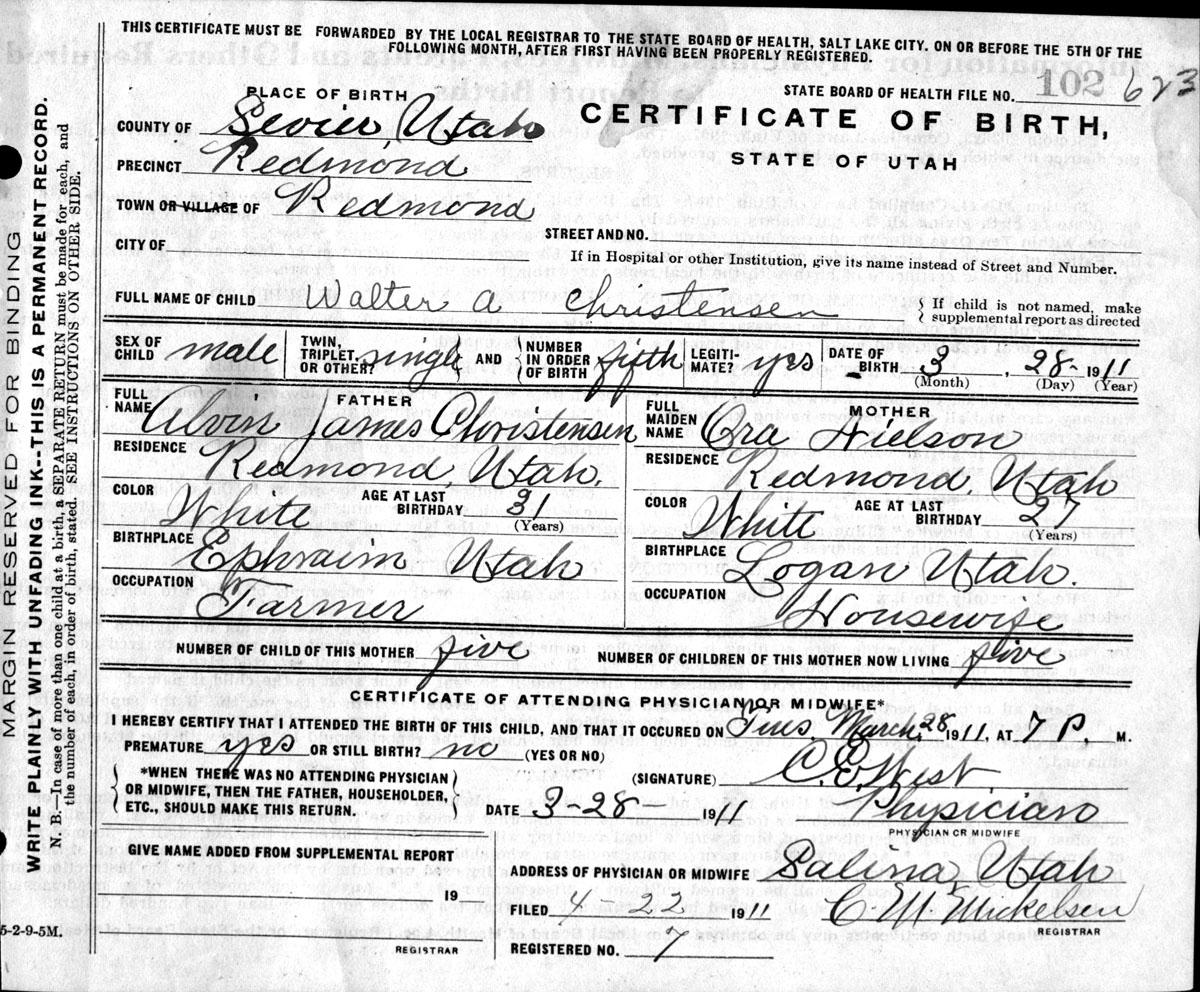 THIS CERTIFICATE MUST BE FORWARDED BY THE LOCAL REGISTRAR TO THE STATE BOARD OF HEALTH, SALT LAKE CITY. ON OR BEFORE THE 5TH OF THE
FOLLOWING MONTH, AFTER FIRST HAVING BEEN PROPERLY REGISTERED.
STATE BOARD OF HEALTH FILE NO. 102 623
PLACE OF BIRTH
CERTIFICATE OF BIRTH,
STATE OF UTAH
COUNTY OF Sevier Utah
PRECINCT Redmond
TOWN OR VILLAGE OF Redmond
CITY OF
STREET AND NO.
If in Hospital or other Institution, give its name instead of Street and Number.
FULL NAME OF CHILD Walter A Christensen
If child is not named, make
supplemental report as directed
SEX OF CHILD male TWIN, TRIPLET, OR OTHER? single AND NUMBER IN ORDER OF BIRTH fifth LEGITI-MATE? yes DATE OF BIRTH 3, 28- 1911
(Month) (Day) (Year)
FATHER
FULL NAME Alvin James Christensen
RESIDENCE Redmond, Utah.
COLOR White AGE AT LAST BIRTHDAY 31
(Years)
BIRTHPLACE Ephraim Utah
OCCUPATION Farmer
MOTHER
FULL MAIDEN NAME Ora Nielson
RESIDENCE Redmond Utah
COLOR White AGE AT LAST BIRTHDAY 27
(Years)
BIRTHPLACE Logan Utah.
OCCUPATION Housewife
NUMBER OF CHILD OF THIS MOTHER five NUMBER OF CHILDREN OF THIS MOTHER NOW LIVING five
CERTIFICATE OF ATTENDING PHYSICIAN OR MIDWIFE*
I HEREBY CERTIFY THAT I ATTENDED THE BIRTH OF THIS CHILD, AND THAT IT OCCURED ON Tues. March, 28 1911, AT 7 P. M.
PREMATURE yes OR STILL BIRTH? no (YES OR NO)
*WHEN THERE WAS NO ATTENDING PHYSICIAN
OR MIDWIFE, THEN THE FATHER, HOUSEHOLDER,
ETC., SHOULD MAKE THIS RETURN.
(SIGNATURE) C. E. West
DATE 3-28 1911 Physician
PHYSICIAN OR MIDWIFE
GIVE NAME ADDED FROM SUPPLEMENTAL REPORT
19
REGISTRAR
ADDRESS OF PHYSICIAN OR MIDWIFE Salina, Utah
FILED 4-22 1911 C M Mickelsen
REGISTRAR
REGISTERED NO. 7
5-2-9-5M.
MARGIN RESERVED FOR BINDING
WRITE PLAINLY WITH UNFADING INK--THIS IS A PERMANENT RECORD.
N. B.—In case of more than one child at a birth, a SEPARATE RETURN must be made for each, and
the number of each, in order of birth, stated. SEE INSTRUCTIONS ON OTHER SIDE.